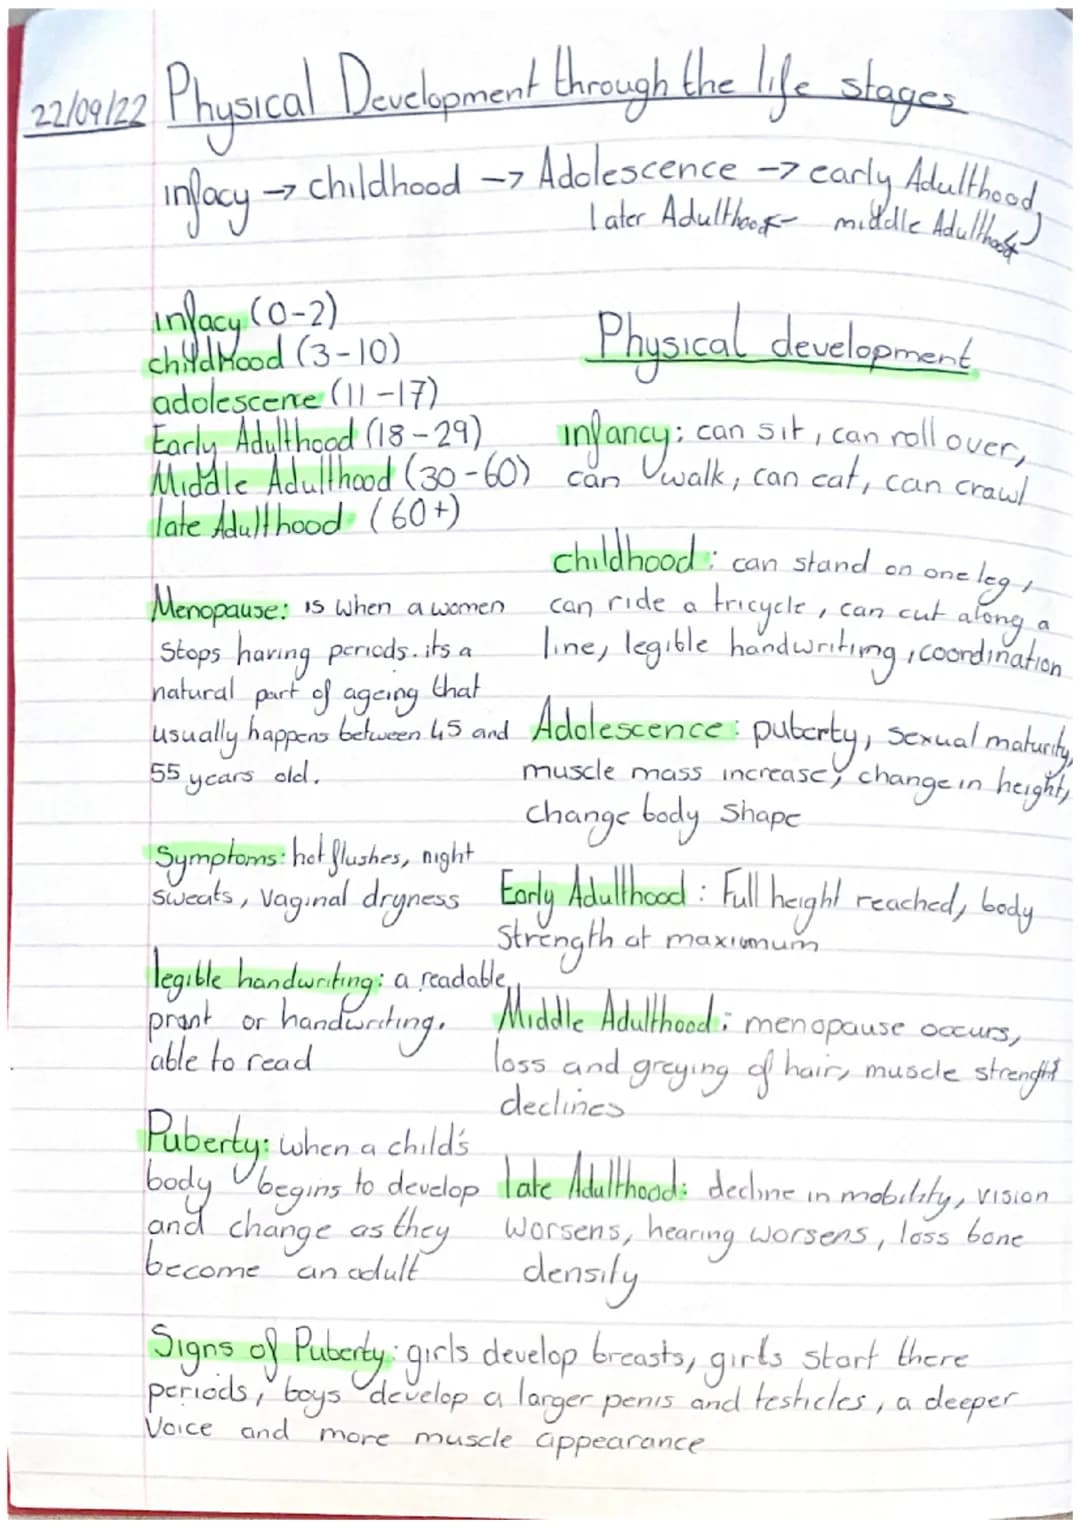 22/09/22 Physical Development through the life stages
infacy → childhood → Adolescence → early Adulthood,
later Adulthood ← middle Adulthood
infacy (0-2)
childhood (3-10)
adolescene (11-17)
Early Adulthood (18-29)
Middle Adulthood (30-60)
late Adulthood (60+)
Menopause: is when a women
stops having periods. its a
natural part of ageing that
usually happens between 45 and
55 years old.
Symptoms: hot flushes, night
sweats, vaginal dryness
legible handwriting: a readable
prant or handwriting.
able to read
Puberty: when a child's
body begins to develop
and change as they
become an adult
Physical development
infancy: can sit, can roll over,
can walk, can eat, can crawl
childhood: can stand on one leg,
can ride a tricycle, can cut along a
line, legible handwriting, coordination
Adolescence: puberty, sexual maturity,
muscle mass increase, change in height,
change body shape
Early Adulthood: Full height reached, body
strength at maximum
Middle Adulthood: menopause occurs,
loss and greying of hair, muscle strenght
declines
late Adulthood: decline in mobility, vision
worsens, hearing worsens, loss bone
density
Signs of Puberty: girls develop breasts, girls start there
periods, boys develop a larger penis and testicles, a deeper
voice and more muscle appearance